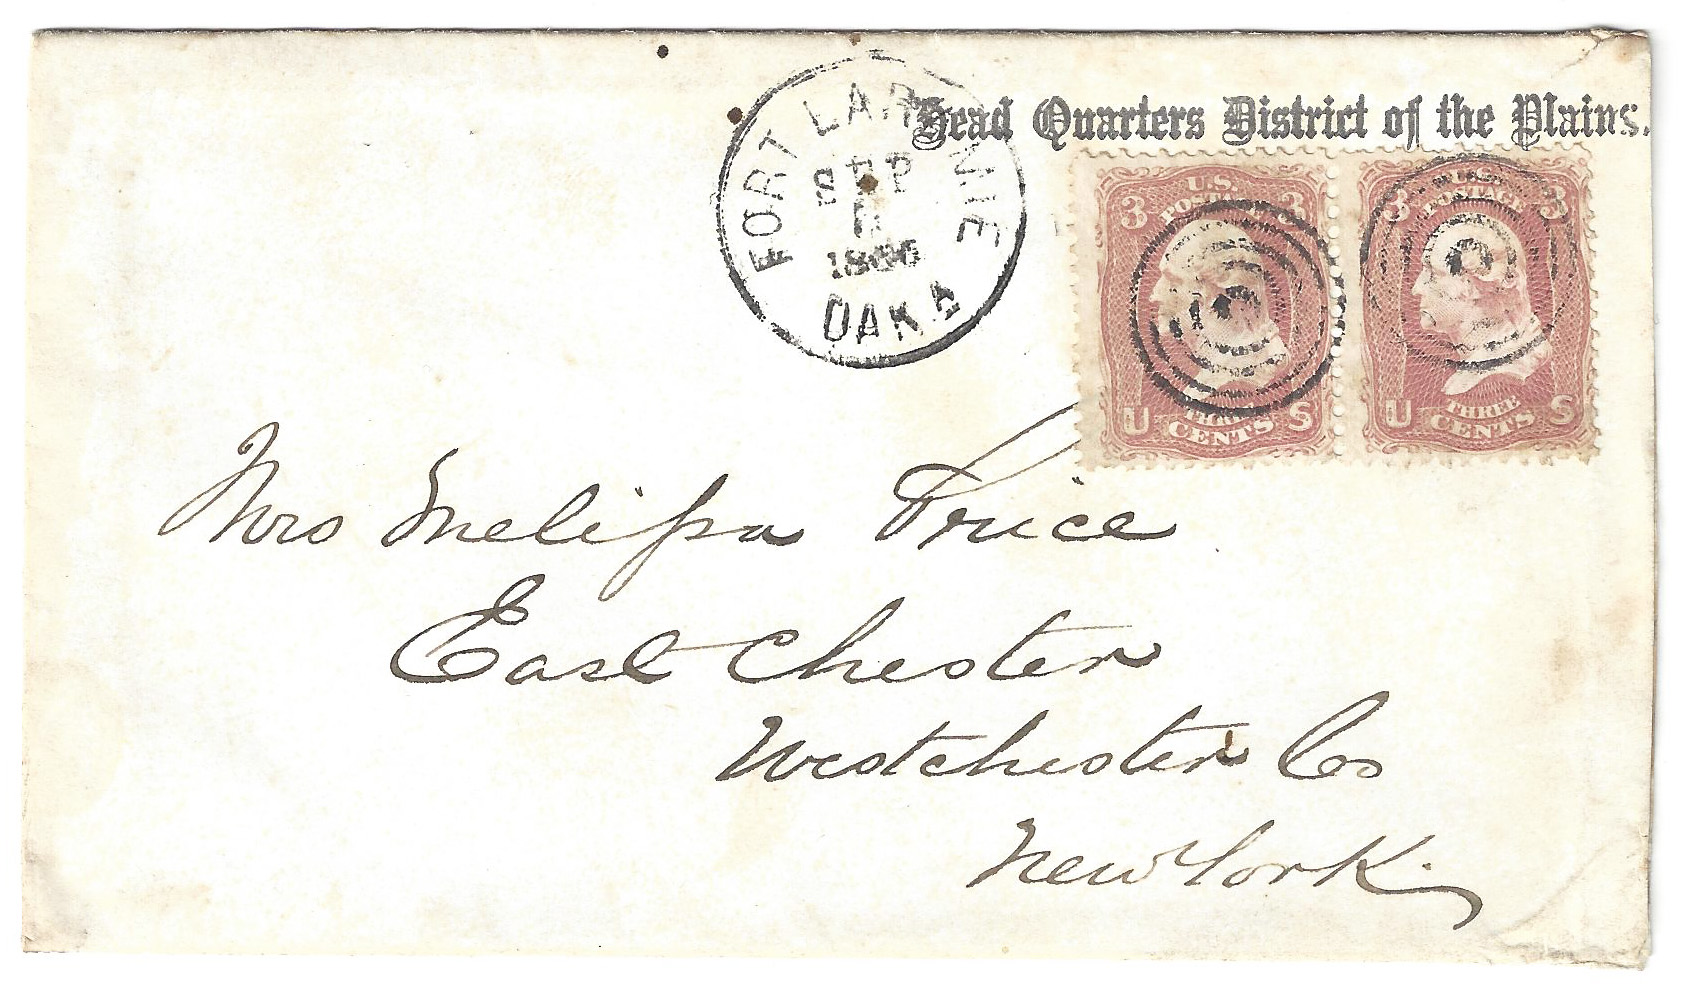 Head Quarters District of the Plains.
FORT LARAMIE
SEP
DAKA
U.S. POSTAGE
3 3
U S
THREE
CENTS
U.S. POSTAGE
3 3
U S
THREE
CENTS
Mrs Melissa Price
East Chester
Westchester Co
New York.